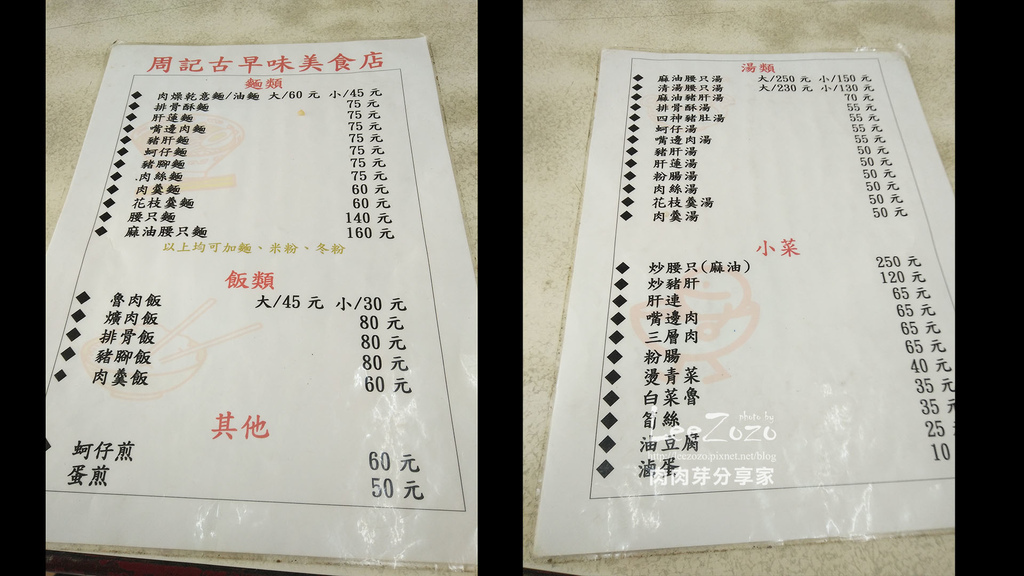 周記古早味美食店
麵類
肉燥乾意麵/油麵 大/60 元 小/45 元
排骨酥麵 75 元
肝蓮麵 75 元
嘴邊肉麵 75 元
豬肝麵 75 元
蚵仔麵 75 元
豬腳麵 75 元
肉絲麵 75 元
肉羹麵 60 元
花枝羹麵 60 元
腰只麵 140 元
麻油腰只麵 160 元
以上均可加麵、米粉、冬粉
飯類
魯肉飯 大/45 元 小/30 元
爌肉飯 80 元
排骨飯 80 元
豬腳飯 80 元
肉羹飯 60 元
其他
蚵仔煎 60 元
蛋煎 50 元
湯類
麻油腰只湯 大/250 元 小/150 元
清湯腰只湯 大/230 元 小/130 元
麻油豬肝湯 70 元
排骨酥湯 55 元
四神豬肚湯 55 元
蚵仔湯 55 元
嘴邊肉湯 55 元
豬肝湯 50 元
肝蓮湯 50 元
粉腸湯 50 元
肉絲湯 50 元
花枝羹湯 50 元
肉羹湯 50 元
小菜
炒腰只(麻油) 250 元
炒豬肝 120 元
肝連 65 元
嘴邊肉 65 元
三層肉 65 元
粉腸 65 元
燙青菜 40 元
白菜魯 35 元
絲 35 元
油豆腐 25
滷蛋 10
photo by
LeeZozo
http://leezozo.pixnet.net/blog
肉肉芽分享家